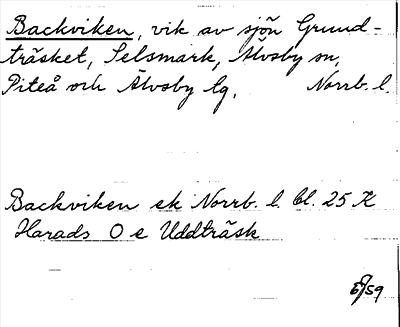 Backviken, vik av sjön Grund-
träsket, Selsmark, Älvsby sn,
Piteå och Älvsby lg. Norrb. l.
Backviken ek Norrb. l. bl. 25 K
Harads O e Uddträsk
59